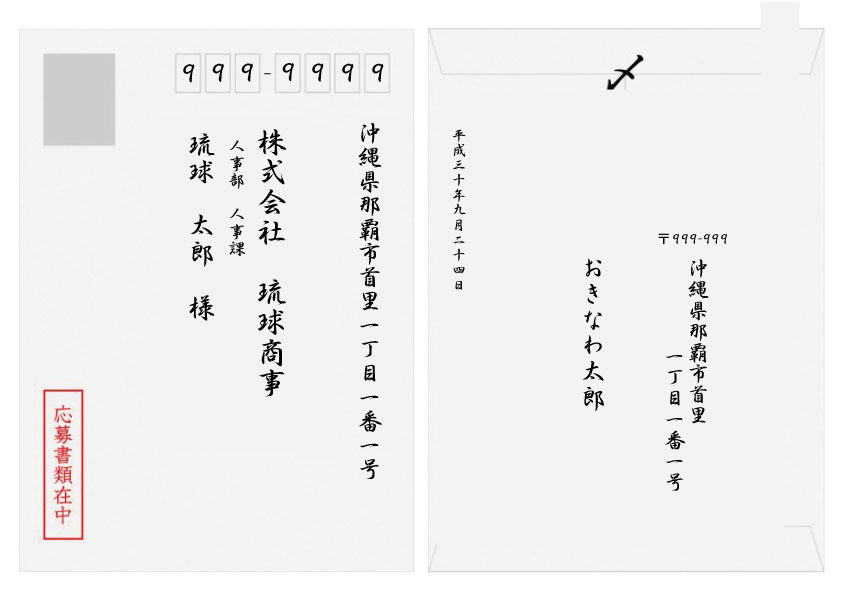 999-9999
沖縄県那覇市首里一丁目一番一号
株式会社 琉球商事
人事部 人事課
琉球 太郎 様
応募書類在中
〆
〒999-999
沖縄県那覇市首里
一丁目一番一号
おきなわ太郎
平成三十年九月二十四日